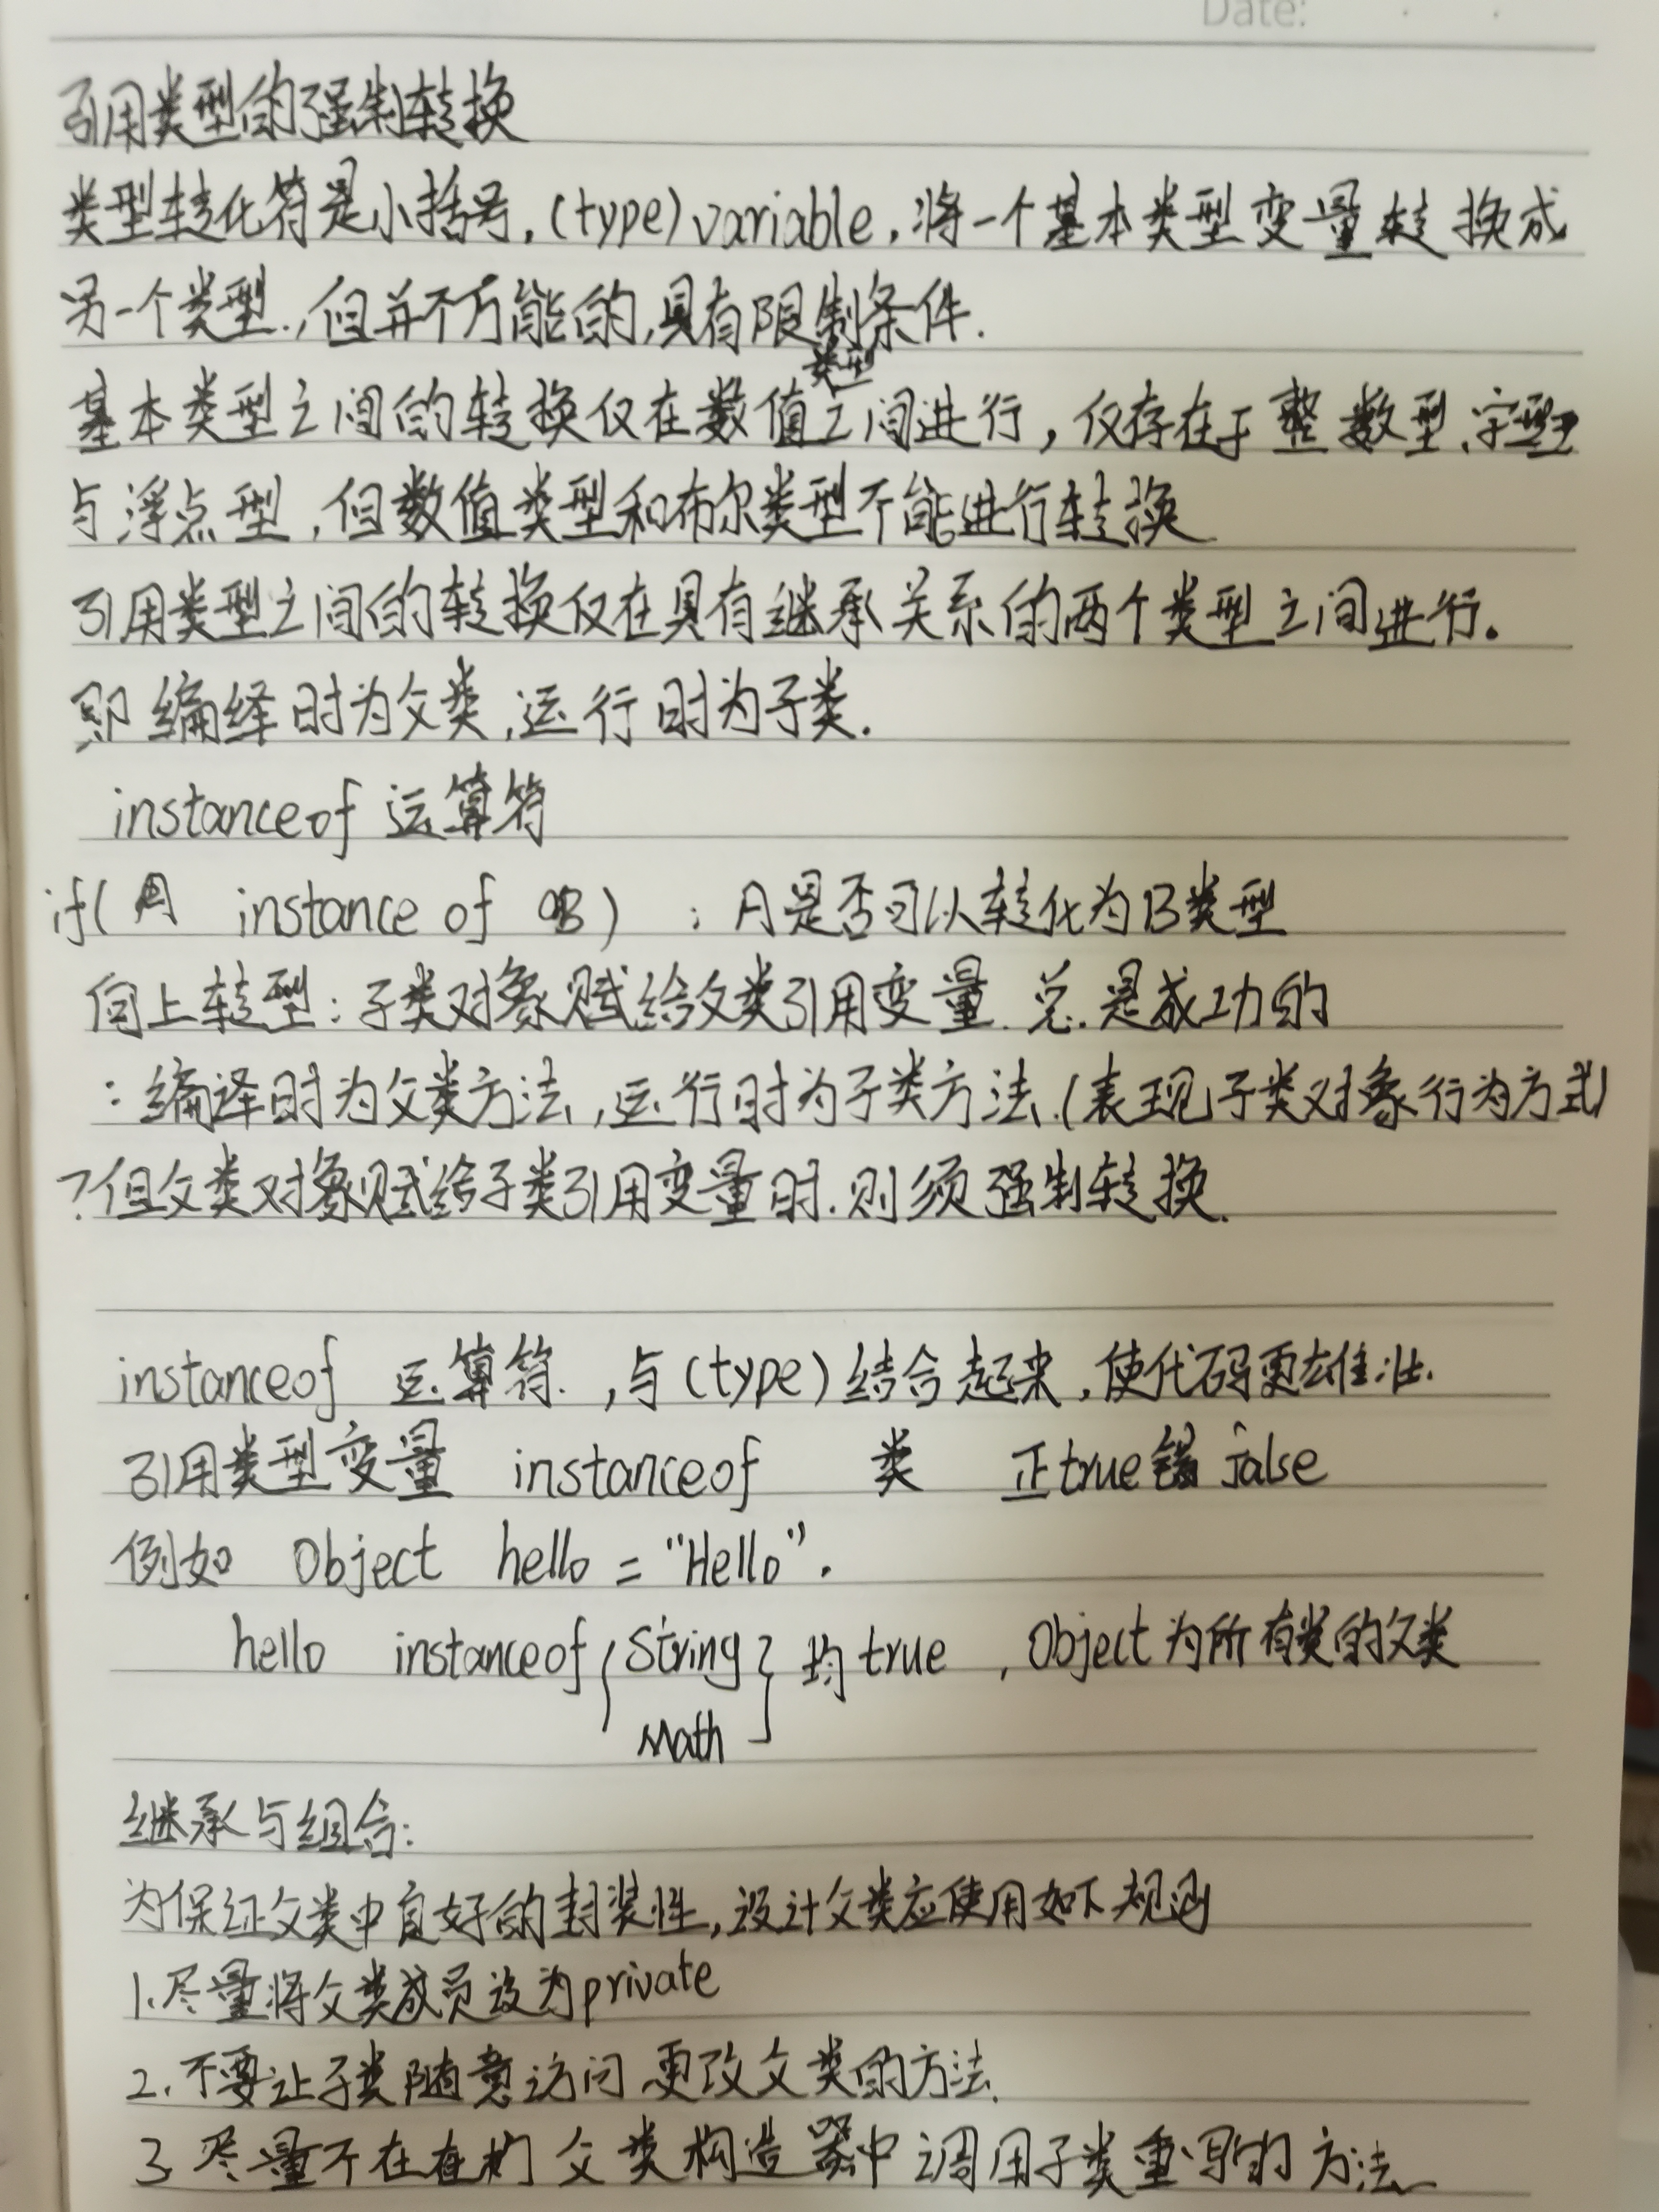 Date:
引用类型的强制转换
类型转化符是小括号,(type)variable,将一个基本类型变量转换成
另一个类型.,但并不万能的,具有限制条件.
类型
基本类型之间的转换仅在数值之间进行,仅存在于整数型、字型
与浮点型,但数值类型和布尔类型不能进行转换
引用类型之间的转换仅在具有继承关系的两个类型之间进行。
即编绎时为父类,运行时为子类.
instanceof 运算符
if(A instance of B) : A是否可以转化为B类型
向上转型:子类对象赋给父类引用变量.总.是成功的
:编译时为父类方法,运行时为子类方法.(表现子类对象行为方式)
?但父类对象赋给子类引用变量时.则须强制转换.
instanceof 运算符.,与(type)结合起来,使代码更雄壮.
引用类型变量 instanceof 类 正true错false
例如 Object hello = "Hello".
hello instanceof { String } 均true , Object为所有类的父类
Math
继承与组合:
为保证父类中良好的封装性,设计父类应使用如下规则
1.尽量将父类成员设为private
2.不要让子类随意访问更改父类的方法.
3.尽量不在父类构造器中调用子类重写的方法